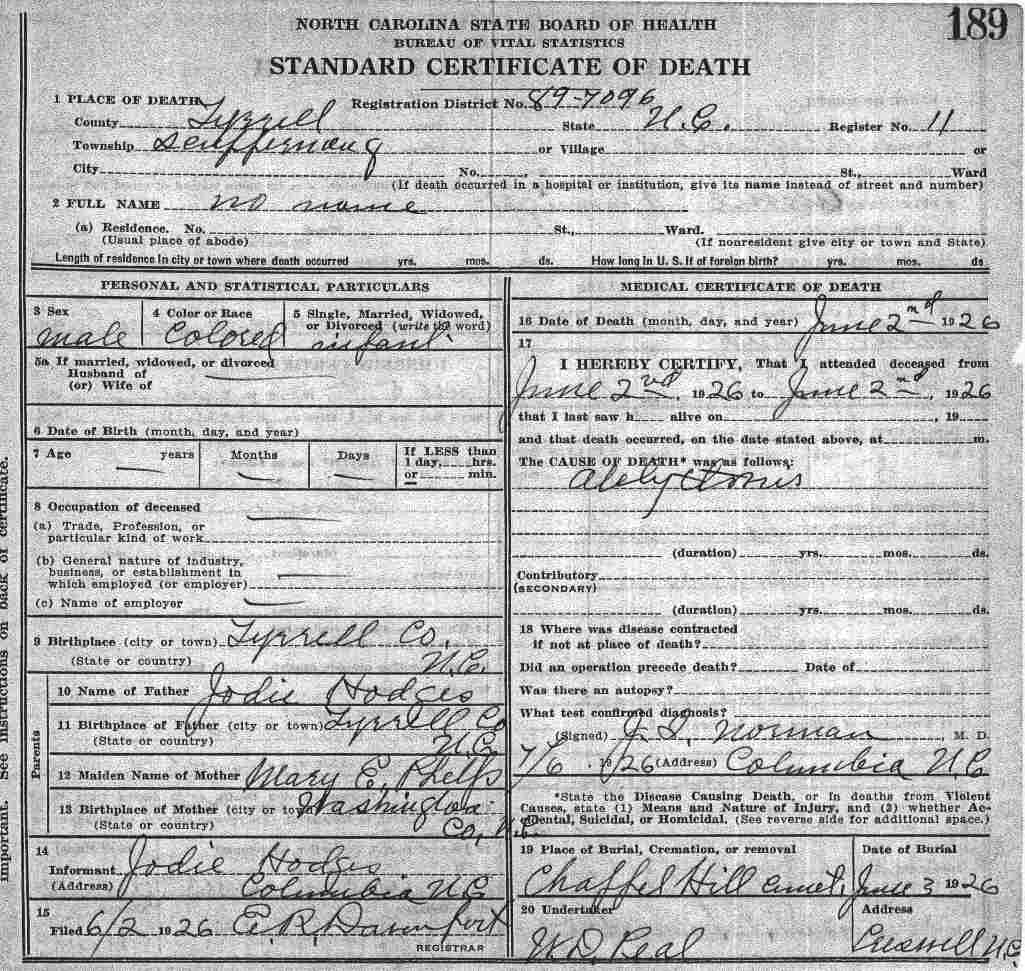 189
NORTH CAROLINA STATE BOARD OF HEALTH
BUREAU OF VITAL STATISTICS
STANDARD CERTIFICATE OF DEATH
1 PLACE OF DEATH Registration District No. 89-7096
County Tyrrell State N.C. Register No. 11
Township Scuppernong or Village or
City No. , St., Ward
(If death occurred in a hospital or institution, give its name instead of street and number)
2 FULL NAME no name
(a) Residence. No. St., Ward.
(Usual place of abode) (If nonresident give city or town and State)
Length of residence in city or town where death occurred yrs. mos. ds. How long in U. S. if of foreign birth? yrs. mos. ds
PERSONAL AND STATISTICAL PARTICULARS
3 Sex 4 Color or Race 5 Single, Married, Widowed,
or Divorced (write the word)
male Colored infant
5a If married, widowed, or divorced
Husband of
(or) Wife of
6 Date of Birth (month, day, and year)
7 Age years Months Days If LESS than
1 day, hrs.
or min.
8 Occupation of deceased
(a) Trade, Profession, or
particular kind of work
(b) General nature of industry,
business, or establishment in
which employed (or employer)
(c) Name of employer
9 Birthplace (city or town) Tyrrell Co.
(State or country) N.C.
Parents
10 Name of Father Jodie Hodges
11 Birthplace of Father (city or town) Tyrrell Co
(State or country) N.C.
12 Maiden Name of Mother Mary E. Phelps
13 Birthplace of Mother (city or town) Washington
(State or country) Co, N.C.
14
Informant Jodie Hodges
(Address) Columbia N.C
15
Filed 6/2 1926 E.R. Davenport
REGISTRAR
MEDICAL CERTIFICATE OF DEATH
16 Date of Death (month, day, and year) June 2nd 1926
17
I HEREBY CERTIFY, That I attended deceased from
June 2nd, 1926 to June 2nd, 1926
that I last saw h alive on , 19
and that death occurred, on the date stated above, at m.
The CAUSE OF DEATH* was as follows:
(duration) yrs. mos. ds.
Contributory
(SECONDARY)
(duration) yrs. mos. ds.
18 Where was disease contracted
if not at place of death?
Did an operation precede death? Date of
Was there an autopsy?
What test confirmed diagnosis?
(Signed) Norman, M. D.
7/6, 1926 (Address) Columbia N.C
*State the Disease Causing Death, or in deaths from Violent
Causes, state (1) Means and Nature of Injury, and (2) whether Ac-
cidental, Suicidal, or Homicidal. (See reverse side for additional space.)
19 Place of Burial, Cremation, or removal Date of Burial
Chaffel Hill cemet, June 3 1926
20 Undertaker Address
W.D. Peal Creswell N.C.
important. See instructions on back of certificate.